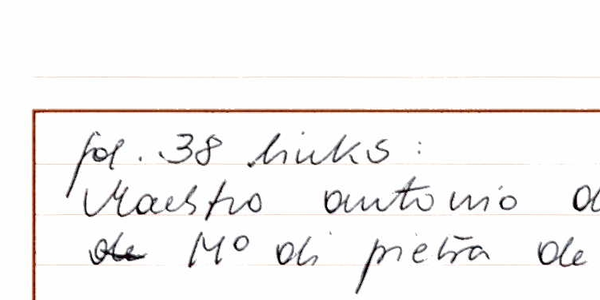 fol. 38 links:
Maestro antonio d
de Mº di pietra de